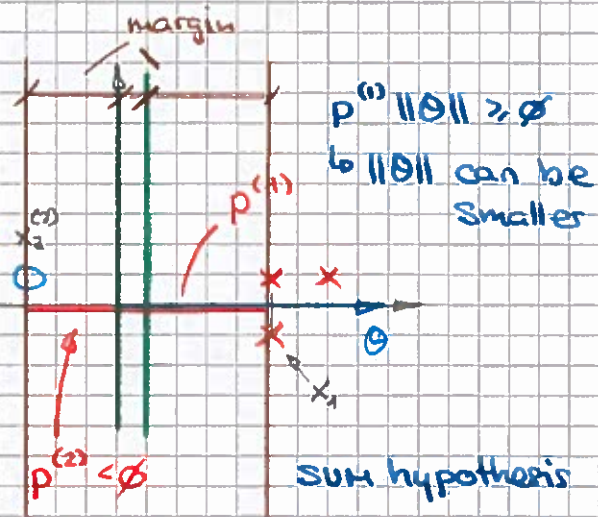 margin
p⁽¹⁾ ‖Θ‖ ≥ ∅
↳ ‖Θ‖ can be
smaller
p⁽¹⁾
x₂⁽²⁾
Θ
x₁
p⁽²⁾ < ∅
SUM hypothesis